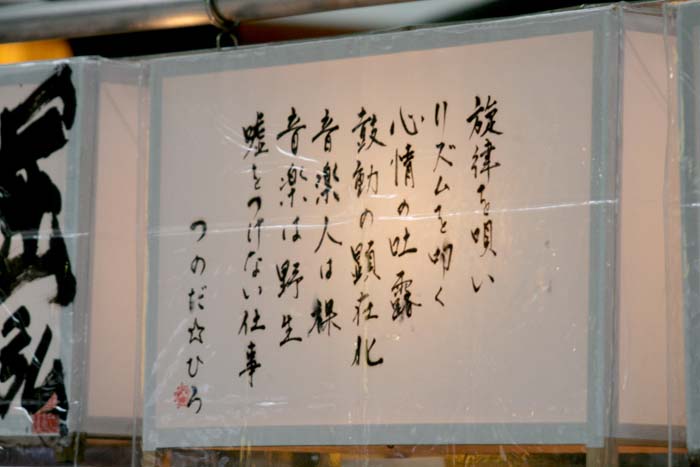 旋律を唄い
リズムを叩く
心情の吐露
鼓動の顕在化
音楽人は裸
音楽は野生
嘘をつけない仕事
つのだ☆ひろ
弘